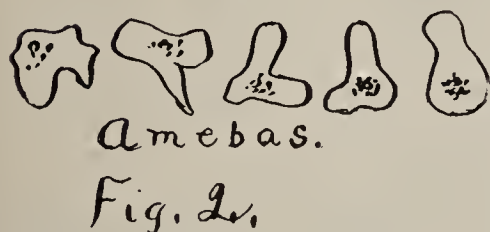 Amebas.
Fig. 2.